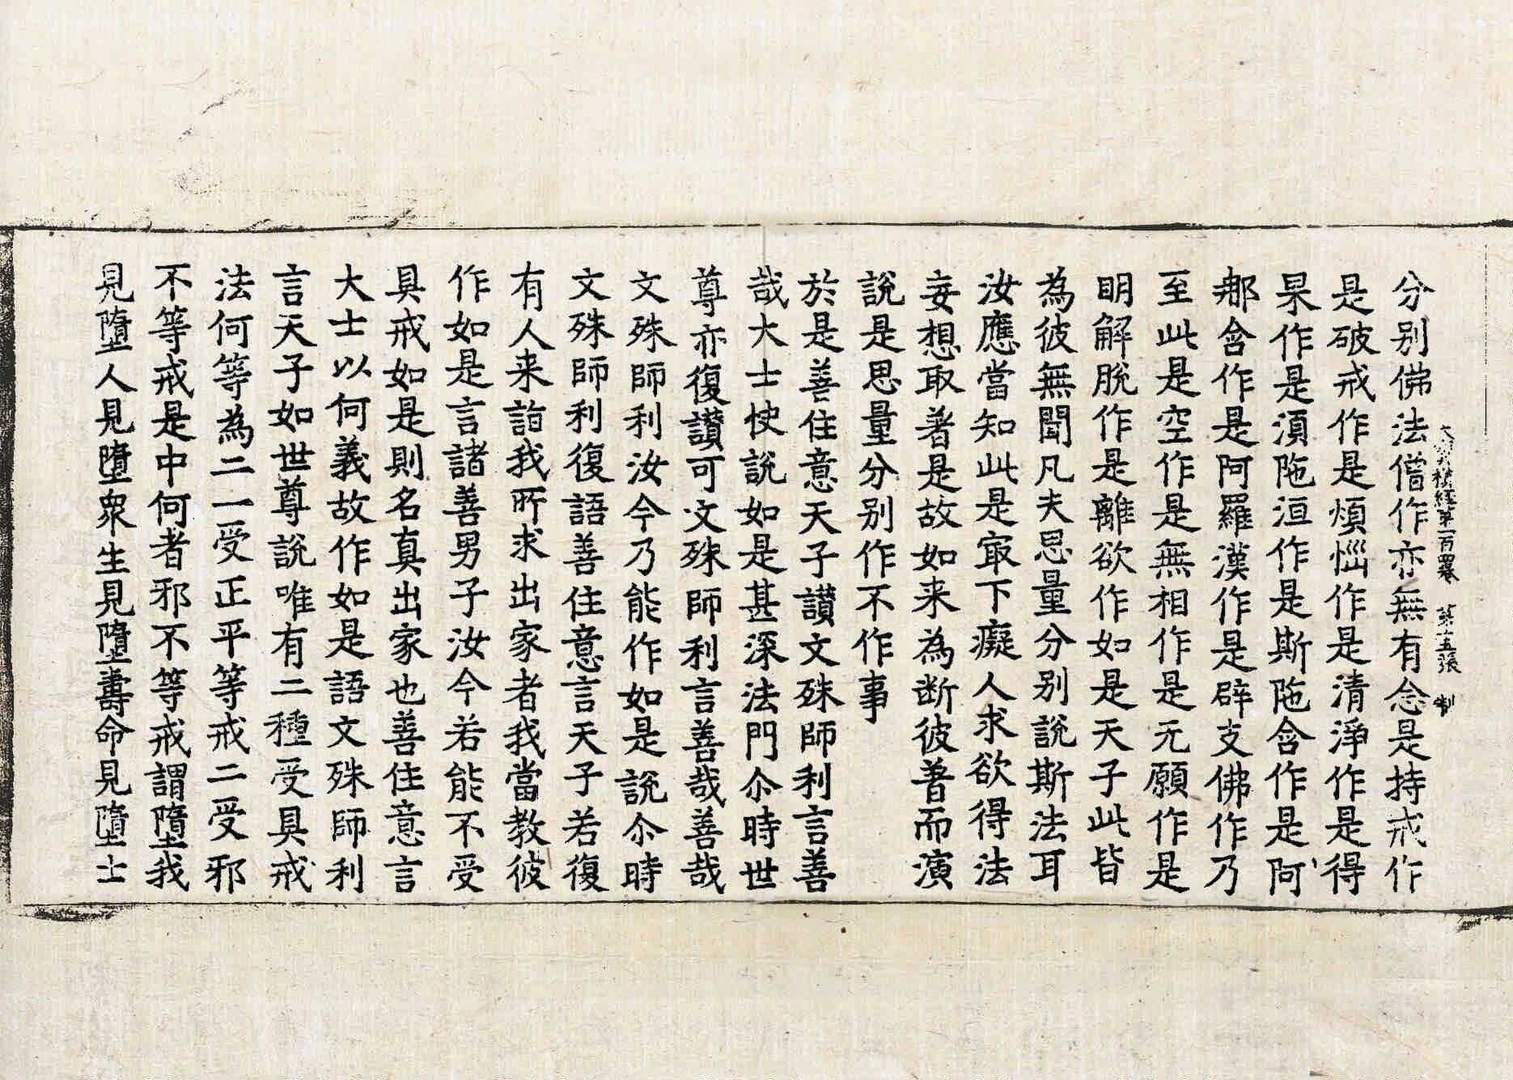 大寶積經第一百四卷 第十五張 制
分别佛法僧作亦無有念是持戒作
是破戒作是煩惱作是清淨作是得
果作是湏陁洹作是斯陁含作是阿
那含作是阿羅漢作是辟支佛作乃
至此是空作是無相作是无願作是
明解脫作是離欲作如是天子此皆
為彼無聞凡夫思量分别說斯法耳
汝應當知此是㝡下癡人求欲得法
妄想取著是故如来為断彼著而演
說是思量分别作不作事
於是善住意天子讃文殊師利言善
哉大士快說如是甚深法門尒時世
尊亦復讃可文殊師利言善哉善哉
文殊師利汝今乃能作如是說尒時
文殊師利復語善住意言天子若復
有人来詣我所求出家者我當教彼
作如是言諸善男子汝今若能不受
具戒如是則名真出家也善住意言
大士以何義故作如是語文殊師利
言天子如世尊說唯有二種受具戒
法何等為二一受正平等戒二受邪
不等戒是中何者邪不等戒謂墮我
見墮人見墮衆生見墮壽命見墮士